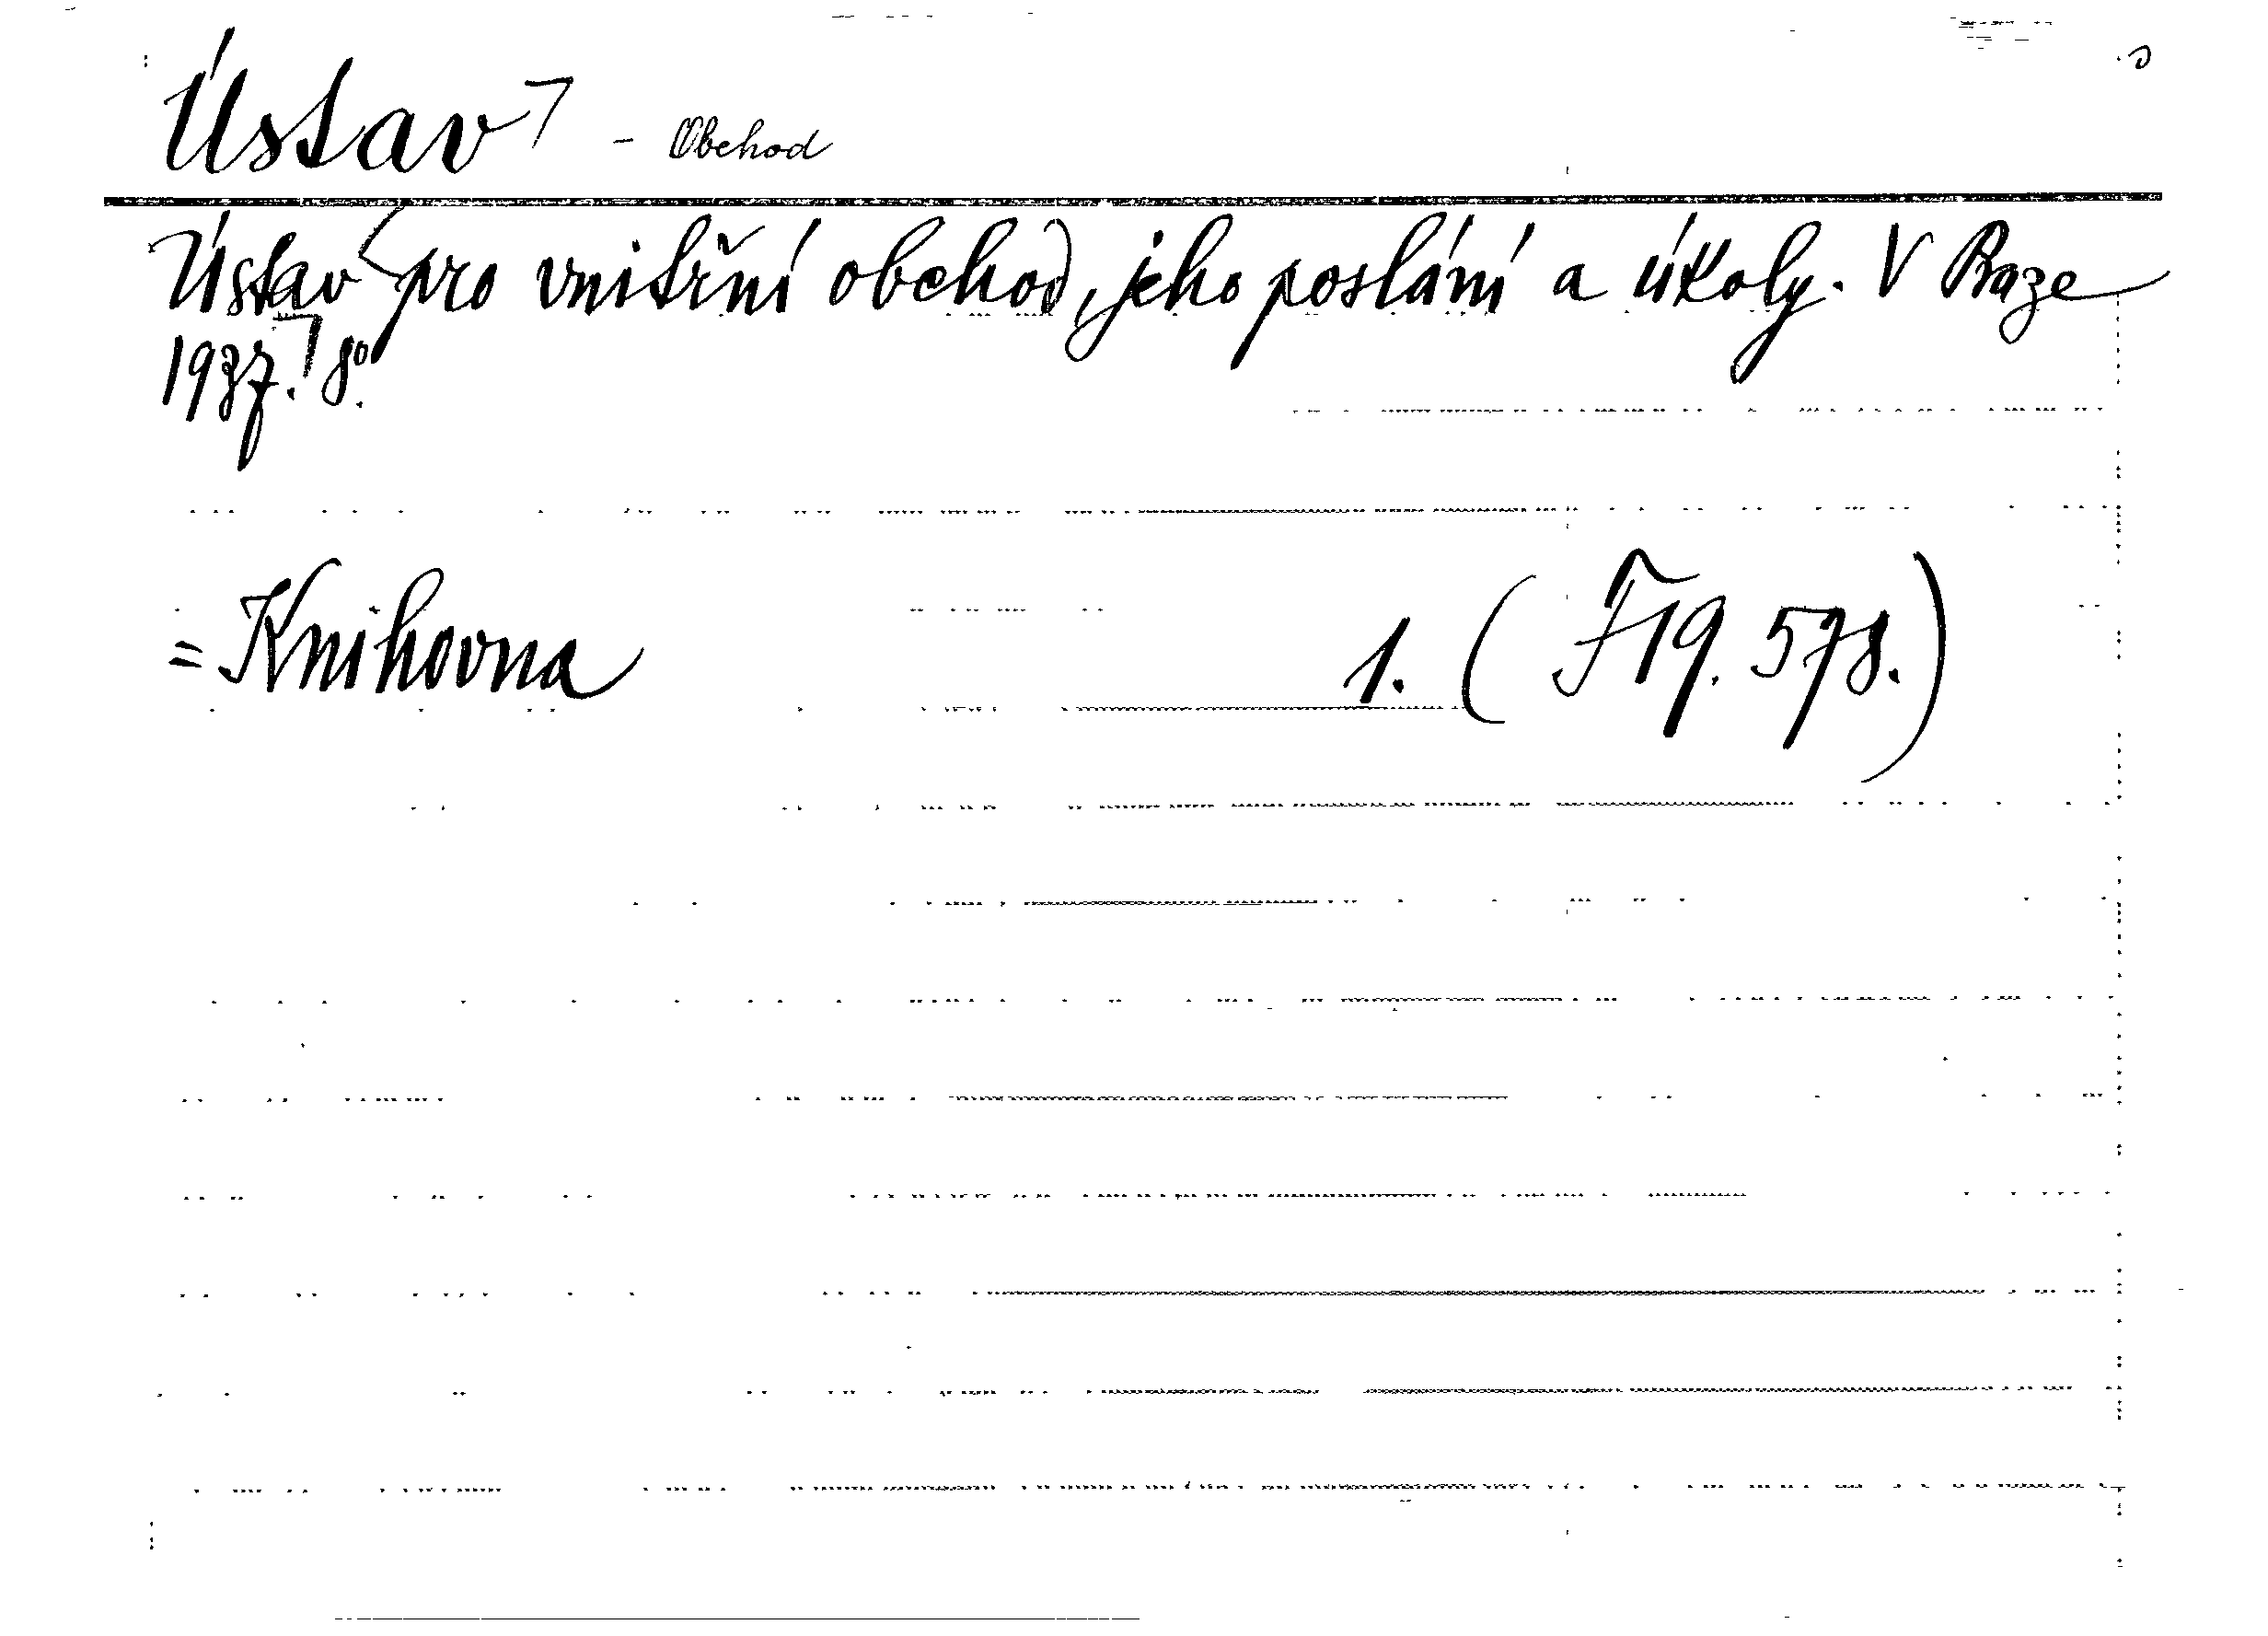 Ústav - Obchod
Ústav pro vnitřní obchod, jeho poslání a úkoly. V Praze
1937. 8º.
= Knihovna 1. (F 19. 578.)